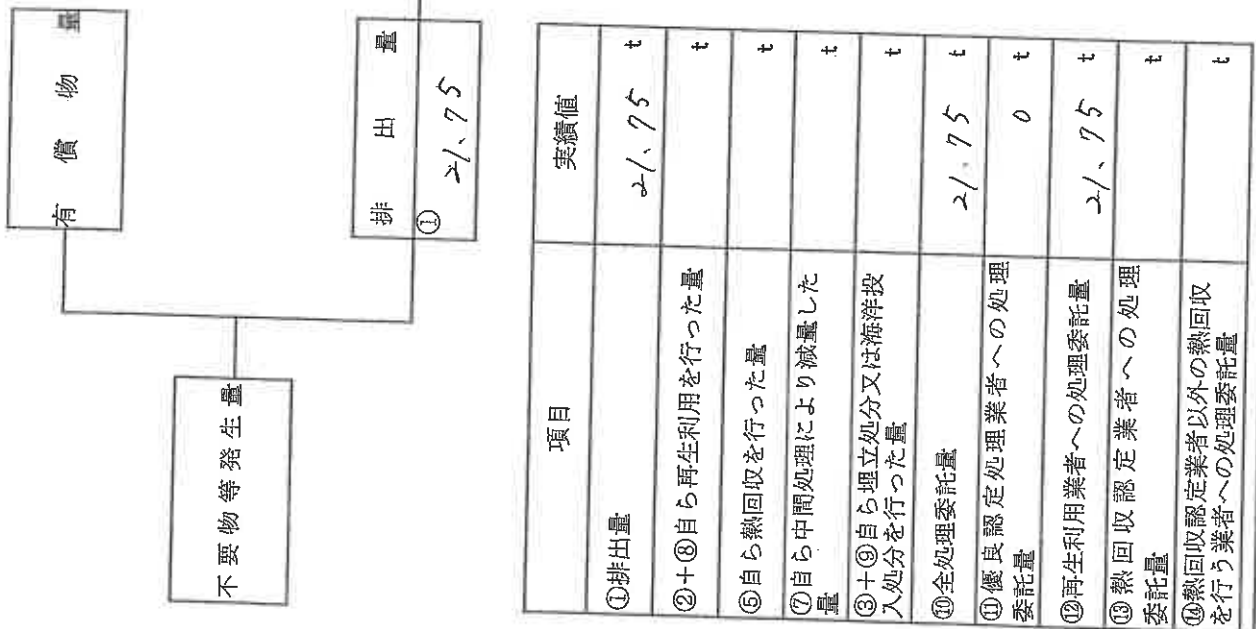 不要物等発生量
有償物量
排出量
①
21、75
項目 実績値
①排出量 21、75 t
②+⑧自ら再生利用を行った量 t
⑤自ら熱回収を行った量 t
⑦自ら中間処理により減量した
量 t
③+⑨自ら埋立処分又は海洋投
入処分を行った量 t
⑩全処理委託量 21、75 t
⑪優良認定処理業者への処理
委託量 0 t
⑫再生利用業者への処理委託量 21、75 t
⑬熱回収認定業者への処理
委託量 t
⑭熱回収認定業者以外の熱回収
を行う業者への処理委託量 t